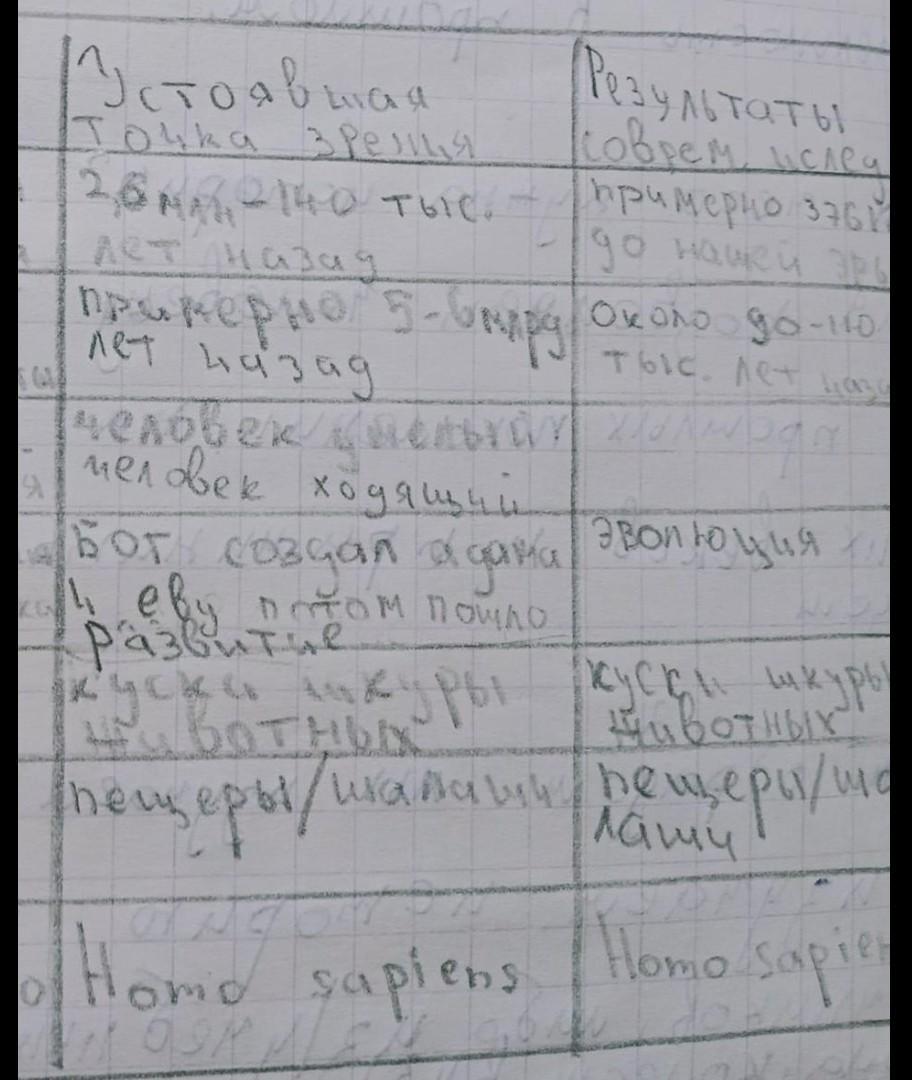 Устоявшая
точка зрения
Результаты
соврем. ислед
2,6 млн-140 тыс.
лет назад
примерно
до нашей эры
примерно 5-6 млрд
лет назад
Около 90-110
тыс. лет наза
человек умелый
человек ходящий
Бог создал адама
и еву потом пошло
развитие
эволюция
куски шкуры
животных
куски шкуры
животных
пещеры/шалаши
пещеры/ша
лаши
Homo sapiens
Homo sapien